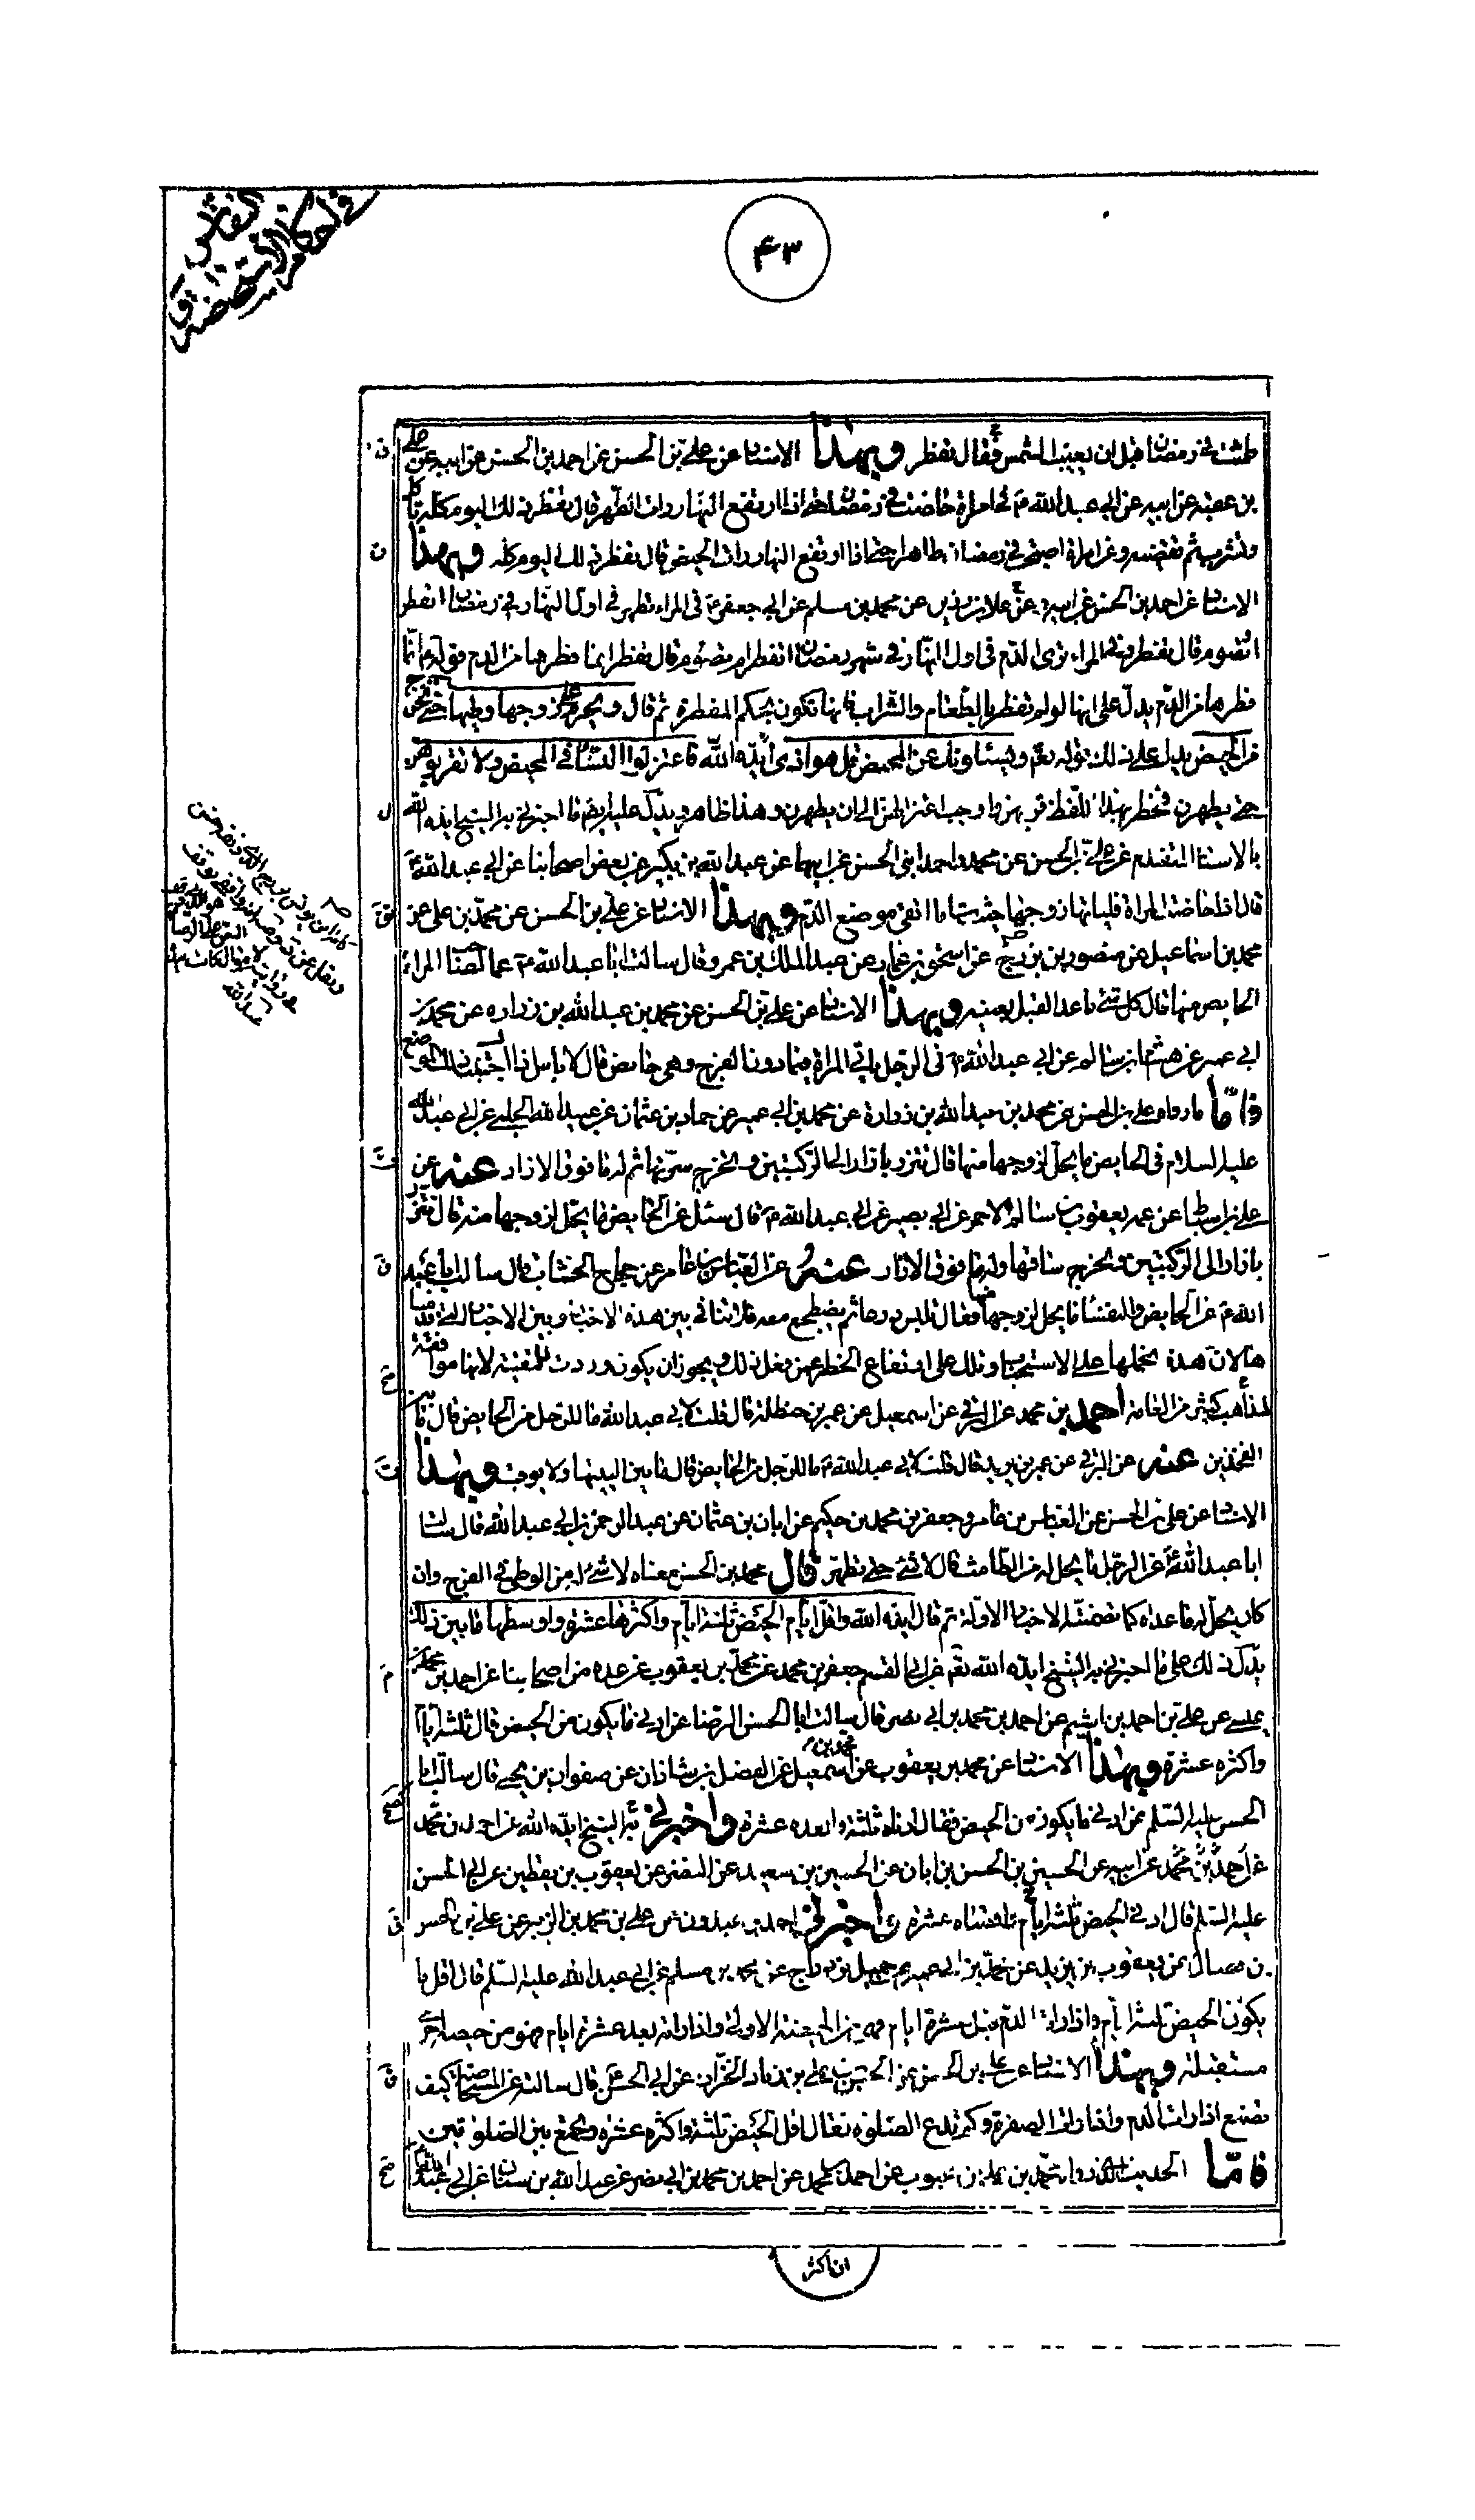 في احكام الحيض
والنفاس
٤٣
طمثت في رمضان قبل ان تغيب الشمس فقال تفطر وبهذا الاسناد عن علي بن الحسن عن احمد بن الحسن عن ابيه عن علي
بن عقبة عن ابيه عن ابي عبد الله ع في امراة حاضت في رمضان حتى اذا ارتفع النهار رات الطهر قال تفطر ذلك اليوم كله تاكل
وتشرب ثم تقضيه وعن امراة اصبحت في رمضان طاهرا حتى اذا ارتفع النهار رات الحيض قال تفطر ذلك اليوم كله وبهذا
الاسناد عن احمد بن الحسن عن ابيه عن علا بن رزين عن محمد بن مسلم عن ابي جعفر ع في المراة تطهر في اول النهار في رمضان اتفطر
او تصوم قال تفطر وفي المراة ترى الدم في اول النهار في شهر رمضان اتفطر ام تصوم قال تفطر انما فطرها من الدم فقوله ع انما
فطرها من الدم يدل على انها لو لم تفطر بالطعام والشراب فانها تكون بحكم المفطرة ثم قال ويحرم على زوجها وطيها حتى تخرج
من الحيض يدل على ذلك قوله تعم ويسئلونك عن المحيض قل هو اذى فاعتزلوا النساء في المحيض ولا تقربوهن
حتى يطهرن فحظر بهذا اللفظ قربهن واوجب اعتزالهن الى ان يطهرن وهذا ظاهر ويدل عليه ايضم ما اخبرني به الشيخ ايده الله
بالاسناد المتقدم عن علي بن الحسن عن محمد واحمد ابني الحسن عن ابيهما عن عبد الله بن بكير عن بعض اصحابنا عن ابي عبد الله ع
قال اذا حاضت المراة فلياتها زوجها حيث شاء ما اتقى موضع الدم وبهذا الاسناد عن علي بن الحسن عن محمد بن علي عن
محمد بن اسماعيل عن منصور بن بزرج عن اسحق بن عمار عن عبد الملك بن عمرو قال سالت ابا عبد الله ع عما لصاحب المراة
الحايض منها قال كل شئ ما عدا القبل بعينه وبهذا الاسناد عن علي بن الحسن عن محمد بن عبد الله بن زرارة عن محمد بن
ابي عمير عن هشام بن سالم عن ابي عبد الله ع في الرجل ياتي المراة فيما دون الفرج وهي حايض قال لا باس اذا اجتنب ذلك الموضع
فاما ما رواه علي بن الحسن عن محمد بن عبد الله بن زرارة عن محمد بن ابي عمير عن حماد بن عثمان عن عبيد الله الحلبي عن ابي عبد الله
عليه السلام في الحايض ما يحل لزوجها منها قال تتزر بازار الى الركبتين وتخرج سرتها ثم له ما فوق الازار عنه عن
علي بن اسباط عن عمه يعقوب بن سالم الاحمر عن ابي بصير عن ابي عبد الله ع قال سئل عن الحايض ما يحل لزوجها منه قال تتزر
بازار الى الركبتين وتخرج ساقها وله ما فوق الازار عنه عن العباس بن عامر عن حجاج الخشاب قال سالت ابا عبد
الله ع عن الحايض والنفساء ما يحل لزوجها منها فقال تلبس درعا ثم تضطجع معه فلا تنافي بين هذه الاخبار وبين الاخبار التي قدمنا
ها لان هذه نحملها على الاستحباب وتلك على ارتفاع الحظر عن فعل ذلك ويجوز ان يكون وردت للتقية لانها موافقة
لمذاهب كثير من العامة احمد بن محمد عن البرقي عن اسمعيل عن عمر بن حنظلة قال قلت لابي عبد الله ما للرجل من الحايض قال ما بين
الفخذين عنه عن البرقي عن عمر بن يزيد قال قلت لابي عبد الله ع ما للرجل من الحايض قال ما بين اليتيها ولا يوقب وبهذا
الاسناد عن علي بن الحسن عن العباس بن عامر وجعفر بن محمد بن حكيم عن ابان بن عثمان عن عبد الرحمن بن ابي عبد الله قال سالت
ابا عبد الله ع عن الرجل ما يحل له من الطامث قال لا شئ حتى تطهر قال محمد بن الحسن معناه لا شئ له من الوطي في الفرج وان
كان يحل له ما عداه كما تضمنته الاخبار الاولة ثم قال ايده الله واقل ايام الحيض ثلثة ايام واكثرها عشرة واوسطها ما بين ذلك
يدل ذلك على ما اخبرني به الشيخ ايده الله تعم عن ابي القسم جعفر بن محمد عن محمد بن يعقوب عن عدة من اصحابنا عن احمد بن محمد بن
عيسى عن علي بن احمد بن اشيم عن احمد بن محمد بن ابي نصر قال سالت ابا الحسن الرضا عن ادنى ما يكون من الحيض قال ثلثة ايام
واكثره عشرة وبهذا الاسناد عن محمد بن يعقوب عن محمد بن اسمعيل عن الفضل بن شاذان عن صفوان بن يحيى قال سالت ابا
الحسن عليه السلم عن ادنى ما يكون من الحيض فقال ادناه ثلثة وابعده عشرة واخبرني به الشيخ ايده الله عن احمد بن محمد
عن احمد بن محمد عن ابيه عن الحسين بن الحسن بن ابان عن الحسين بن سعيد عن النضر عن يعقوب بن يقطين عن ابي الحسن
عليه السلم قال ادنى الحيض ثلثة ايام واقصاه عشرة واخبرني احمد بن عبدون عن علي بن محمد بن الزبير عن علي بن الحسن
بن فضال عن يعقوب بن يزيد عن محمد بن ابي عمير عن جميل بن دراج عن محمد بن مسلم عن ابي عبد الله عليه السلم قال اقل ما
يكون الحيض ثلثة ايام واذا رات الدم قبل عشرة ايام فهو من الحيضة الاولى واذا راته بعد عشرة ايام فهو من حيضة اخرى
مستقبلة وبهذا الاسناد عن علي بن الحسن عن الحسن بن علي بن زياد الخزاز عن ابي الحسن ع قال سالته عن المستحاضة كيف
تصنع اذا رات الدم واذا رات الصفرة وكم تدع الصلوة فقال اقل الحيض ثلثة واكثره عشرة وتجمع بين الصلوتين
فاما الحديث الذي رواه محمد بن علي بن محبوب عن احمد بن محمد عن احمد بن محمد بن ابي نصر عن عبد الله بن سنان عن ابي عبد الله ع
ان اكثر